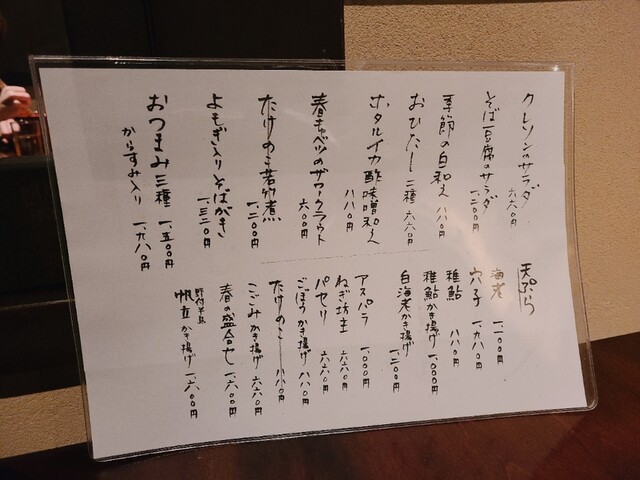 クレソンのサラダ 六六〇円
そば豆腐のサラダ 一、二〇〇円
季節の白和え 八八〇円
おひたし 二種 六六〇円
ホタルイカ酢味噌和え 八八〇円
春キャベツのザワークラウト 六〇〇円
たけのこ若竹煮 一、二〇〇円
よもぎ入りそばがき 一、三二〇円
おつまみ三種 一、五〇〇円
からすみ入り 一、九八〇円
天ぷら
海老 一、二〇〇円
穴子 一、九八〇円
稚鮎 八八〇円
稚鮎かき揚げ 一、〇〇〇円
白海老かき揚げ 一、二〇〇円
アスパラ 一、〇〇〇円
ねぎ坊主 六六〇円
パセリ 六六〇円
ごぼうかき揚げ 八八〇円
たけのこ 一、八八〇円
こごみかき揚げ 六六〇円
春の盛合せ 一、六〇〇円
野付半島
帆立かき揚げ 一、六〇〇円